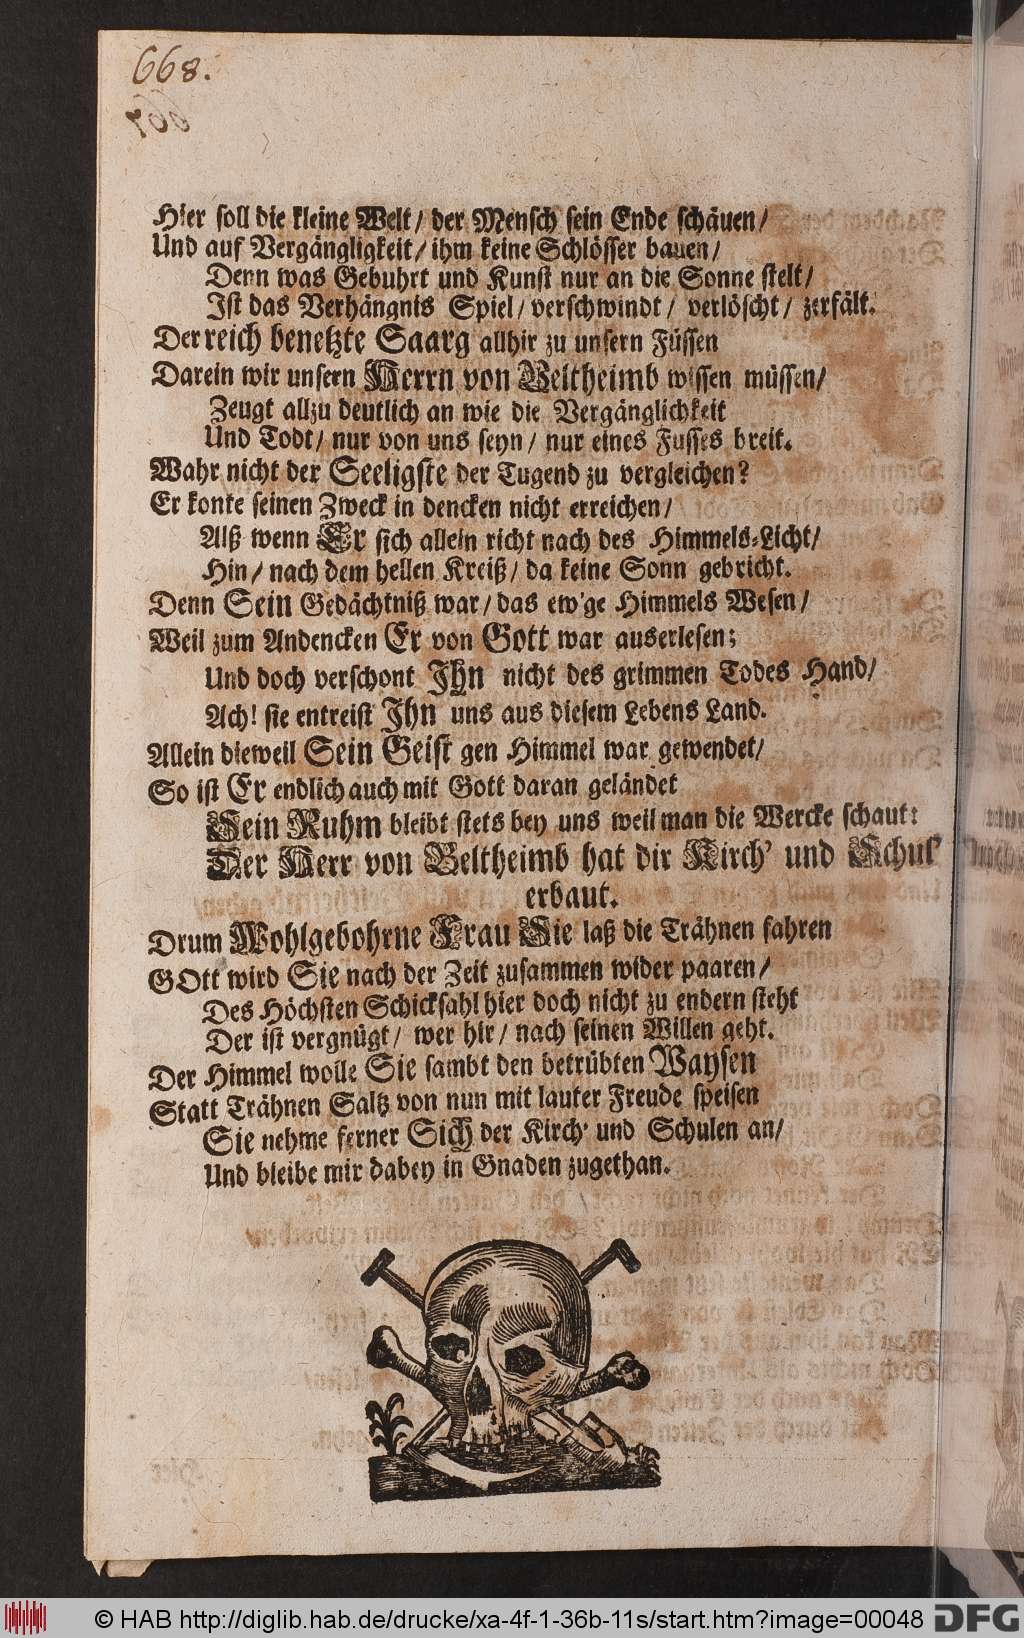 668.
667
Hier soll die kleine Welt/ der Mensch sein Ende schäuen/
Und auf Vergängligkeit/ ihm keine Schlösser bauen/
Denn was Gebuhrt und Kunst nur an die Sonne stelt/
Ist das Verhängnis Spiel/ verschwindt/ verlöscht/ zerfält.
Der reich benetzte Saarg allhir zu unsern Füssen
Darein wir unsern Herrn von Veltheimb wissen müssen/
Zeugt allzu deutlich an wie die Vergänglichkeit
Und Todt/ nur von uns seyn/ nur eines Fusses breit.
Wahr nicht der Seeligste der Tugend zu vergleichen?
Er konte seinen Zweck in dencken nicht erreichen/
Alß wenn Er sich allein richt nach des Himmels-Licht/
Hin/ nach dem hellen Kreiß/ da keine Sonn gebricht.
Denn Sein Gedächtniß war/ das ew'ge Himmels Wesen/
Weil zum Andencken Er von Gott war auserlesen;
Und doch verschont Ihn nicht des grimmen Todes Hand/
Ach! sie entreist Ihn uns aus diesem Lebens Land.
Allein dieweil Sein Geist gen Himmel war gewendet/
So ist Er endlich auch mit Gott daran geländet
Sein Ruhm bleibt stets bey uns weil man die Wercke schaut:
Der Herr von Veltheimb hat dir Kirch' und Schul'
erbaut.
Drum Wohlgebohrne Frau Sie laß die Trähnen fahren
GOtt wird Sie nach der Zeit zusammen wider paaren/
Des Höchsten Schicksahl hier doch nicht zu endern steht
Der ist vergnügt/ wer hir/ nach seinen Willen geht.
Der Himmel wolle Sie sambt den betrübten Waysen
Statt Trähnen Saltz von nun mit lauter Freude speisen
Sie nehme ferner Sich der Kirch' und Schulen an/
Und bleibe mir dabey in Gnaden zugethan.
© HAB http://diglib.hab.de/drucke/xa-4f-1-36b-11s/start.htm?image=00048
DFG